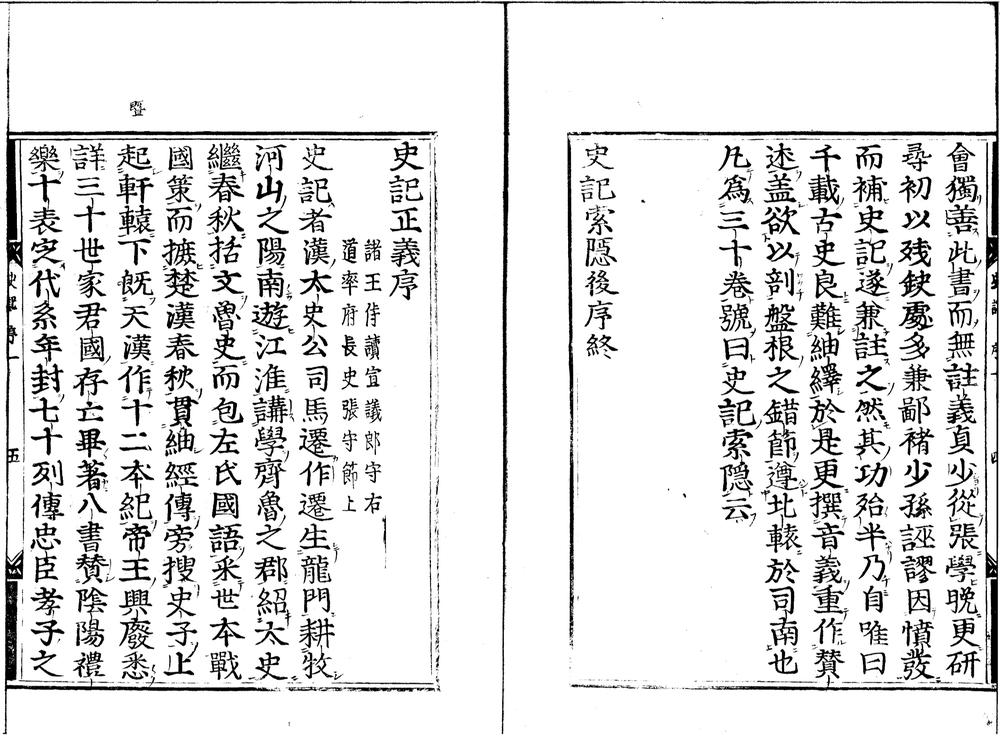 會獨善此書而無註義貞少從張學晚更研
尋初以残鈌處多兼鄙褚少孫誣謬因憤發
而補史記遂兼註之然其功殆半乃自唯曰
千載古史良難紬繹於是更撰音義重作賛
述盖欲以剖盤根之錯節遵北轅於司南也
凡爲三十卷號曰史記索隠云
史記索隠後序終
史記正義序
諸王侍讀宣議郎守右
道率府長史張守節上
史記者漢太史公司馬遷作遷生龍門耕牧
河山之陽南遊江淮講學齊魯之郡紹太史
繼春秋括文魯史而包左氏國語采世本戰
國策而摭楚漢春秋貫紬經傳旁搜史子上
起軒轅下旣天漢作十二本紀帝王興廢悉
詳三十世家君國存亡畢著八書賛陰陽禮
樂十表定代系年封七十列傳忠臣孝子之
五
曁